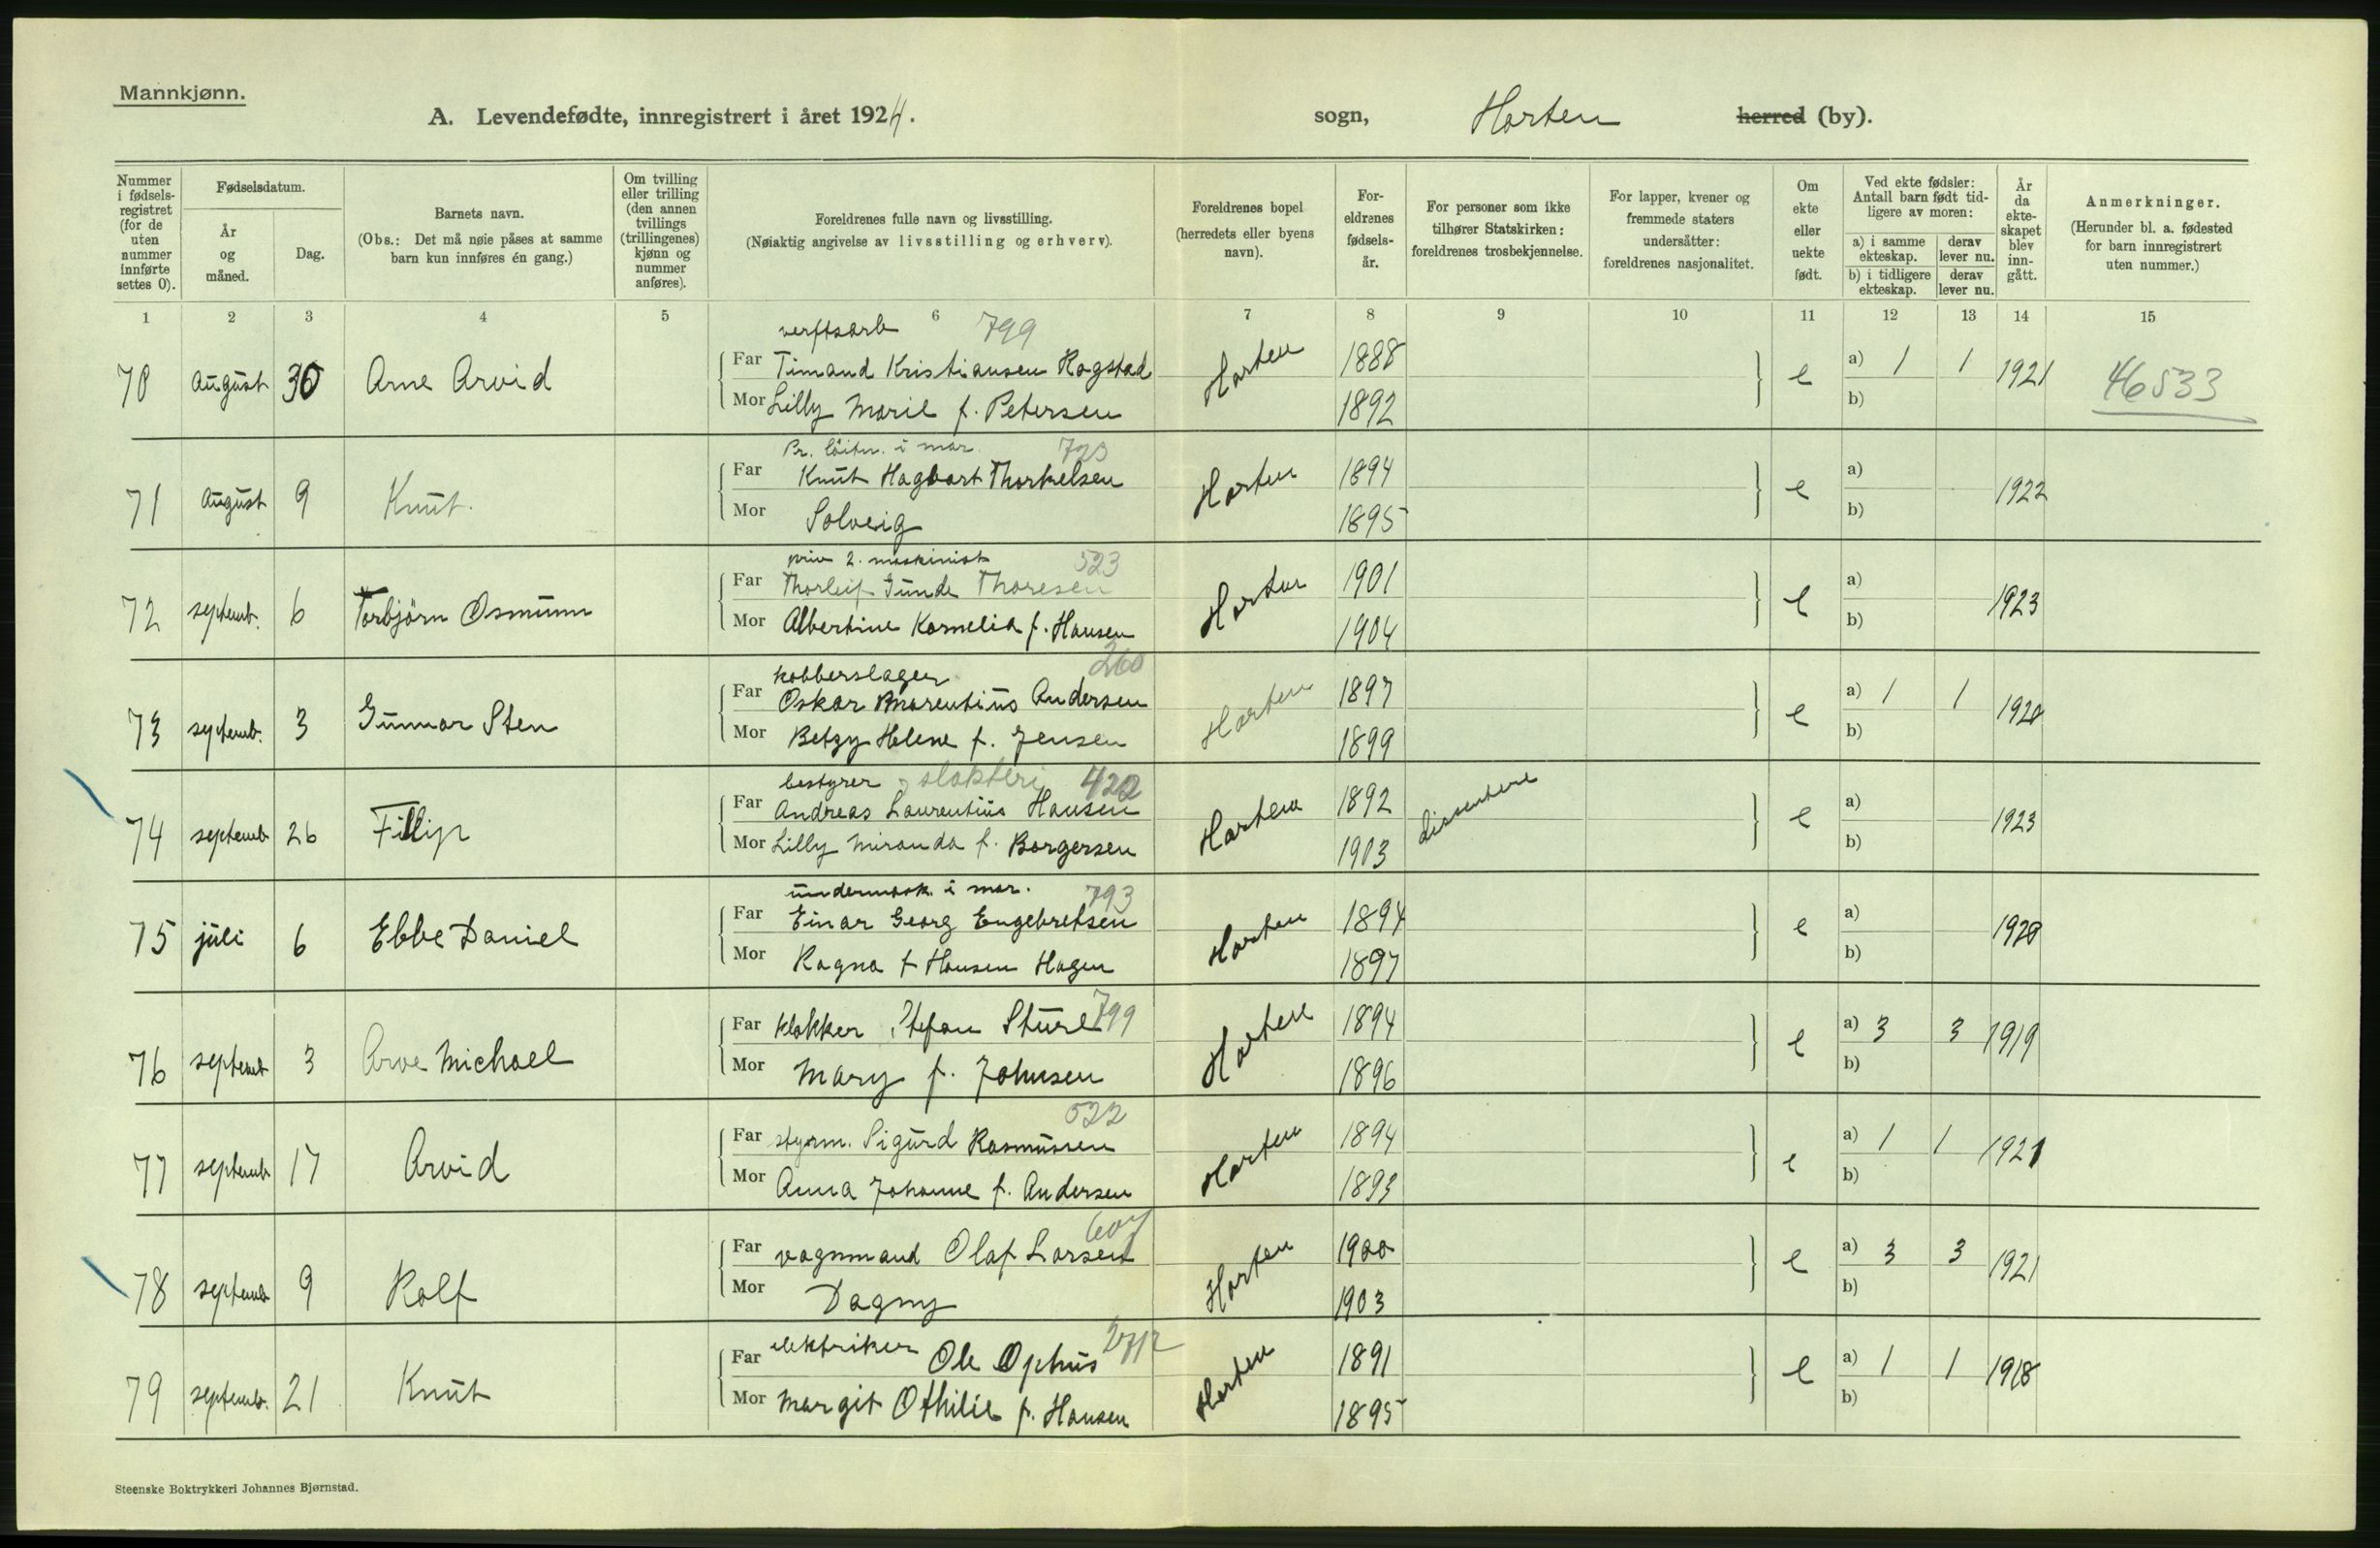 Mannkjønn.
A. Levendefødte, innregistrert i året 1924. sogn, Horten herred (by).
Nummer i fødsels-registret (for de uten nummer innførte settes 0).
Fødselsdatum.
År og måned.
Dag.
Barnets navn.
(Obs.: Det må nøie påses at samme barn kun innføres én gang.)
Om tvilling eller trilling (den annen tvillings (trillingenes) kjønn og nummer anføres).
Foreldrenes fulle navn og livsstilling.
(Nøiaktig angivelse av livsstilling og erhverv).
Foreldrenes bopel (herredets eller byens navn).
For-eldrenes fødsels-år.
For personer som ikke tilhører Statskirken: foreldrenes trosbekjennelse.
For lapper, kvener og fremmede staters undersåtter: foreldrenes nasjonalitet.
Om ekte eller uekte født.
Ved ekte fødsler: Antall barn født tidligere av moren:
a) i samme ekteskap. derav lever nu.
b) i tidligere ekteskap. derav lever nu.
År da ekte-skapet blev inn-gått.
Anmerkninger.
(Herunder bl. a. fødested for barn innregistrert uten nummer.)
1 2 3 4 5 6 7 8 9 10 11 12 13 14 15
verftsarb 799
70 august 30 Arne Arvid Far Timand Kristiansen Rogstad Horten 1888 e a) 1 1 1921 46533
Mor Lilly Marie f. Petersen 1892 b)
Pr. løitn. i mar. 723
71 august 9 Knut. Far Knut Hagbart Thorkelsen Horten 1894 e a) 1922
Mor Solveig 1895 b)
priv 2. maskinist 523
72 septemb. 6 Torbjörn Osmunn Far Thorleif Gunde Thoresen Horten 1901 e a) 1923
Mor Albertine Kornelia f. Hansen 1904 b)
kobberslager 260
73 septemb. 3 Gunnar Sten Far Oskar Marentius Andersen Horten 1897 e a) 1 1 1920
Mor Betzy Helene f. Jensen 1899 b)
bestyrer slakteri 422
74 septemb 26 Fillip Far Andreas Laurentius Hansen Horten 1892 dissentere e a) 1923
Mor Lilly Miranda f. Borgersen 1903 b)
undermask. i mar. 793
75 juli 6 Ebbe Daniel Far Einar Georg Engebretsen Horten 1894 e a) 1920
Mor Ragna f Hansen Hagen 1897 b)
76 septemb 3 Arve Michael Far klokker Stefan Sture 799 Horten 1894 e a) 3 3 1919
Mor Mary f. Johnsen 1896 b)
522
77 septemb 17 Arvid Far styrm. Sigurd Rasmussen Horten 1894 e a) 1 1 1921
Mor Anna Johanne f. Andersen 1893 b)
607
78 septemb 9 Rolf Far vognmand Olaf Larsen Horten 1900 e a) 3 3 1921
Mor Dagny 1903 b)
79 septemb. 21 Knut Far elektriker Ole Ophus Horten 1891 e a) 1 1 1918
Mor Margit Othilie f. Hansen 1895 b)
Steenske Boktrykkeri Johannes Bjørnstad.